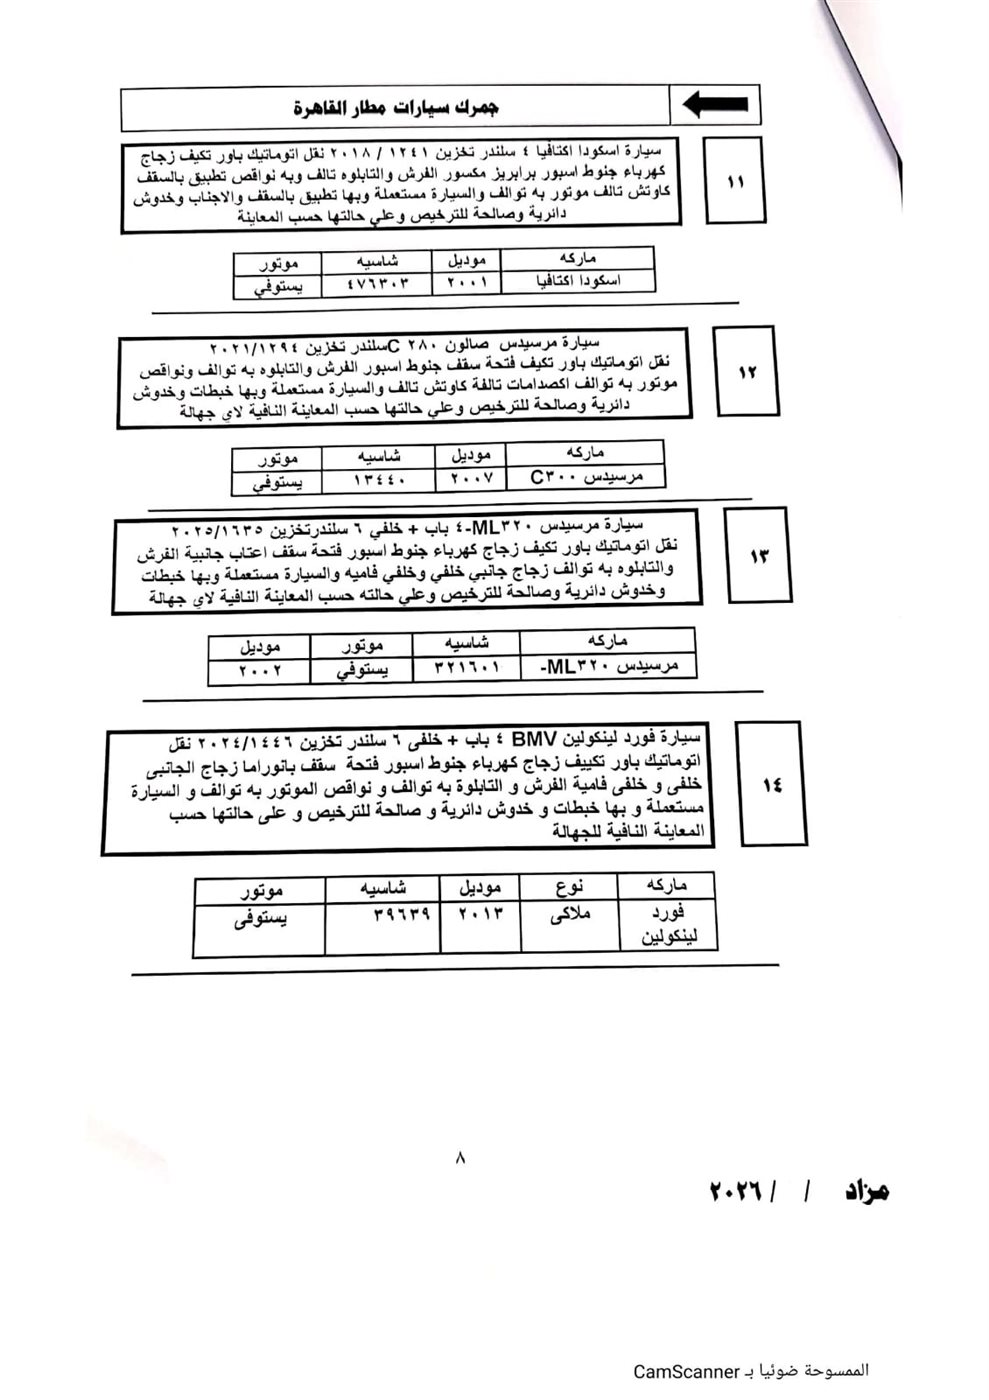 جمرك سيارات مطار القاهرة
١١
سيارة اسكودا اكتافيا ٤ سلندر تخزين ١٢٤١ / ٢٠١٨ نقل اتوماتيك باور تكيف زجاج
كهرباء جنوط اسبور برابريز مكسور الفرش والتابلوه تالف وبه نواقص تطبيق بالسقف
كاوتش تالف موتور به توالف والسيارة مستعملة وبها تطبيق بالسقف والاجناب وخدوش
دائرية وصالحة للترخيص وعلي حالتها حسب المعاينة
ماركه موديل شاسيه موتور
اسكودا اكتافيا ٢٠٠١ ٤٧٦٣٠٣ يستوفي
١٢
سيارة مرسيدس صالون ٢٨٠ C سلندر تخزين ٢٠٢١/١٢٩٤
نقل اتوماتيك باور تكيف فتحة سقف جنوط اسبور الفرش والتابلوه به توالف ونواقص
موتور به توالف اكصدامات تالفة كاوتش تالف والسيارة مستعملة وبها خبطات وخدوش
دائرية وصالحة للترخيص وعلي حالتها حسب المعاينة النافية لاي جهالة
ماركه موديل شاسيه موتور
مرسيدس C٣٠٠ ٢٠٠٧ ١٣٤٤٠ يستوفي
١٣
سيارة مرسيدس ML٣٢٠-٤ باب + خلفي ٦ سلندرتخزين ٢٠٢٥/١٦٣٥
نقل اتوماتيك باور تكيف زجاج كهرباء جنوط اسبور فتحة سقف اعتاب جانبية الفرش
والتابلوه به توالف زجاج جانبي خلفي وخلفي فاميه والسيارة مستعملة وبها خبطات
وخدوش دائرية وصالحة للترخيص وعلي حالته حسب المعاينة النافية لاي جهالة
ماركه شاسيه موتور موديل
مرسيدس ML٣٢٠- ٣٢١٦٠١ يستوفي ٢٠٠٢
١٤
سيارة فورد لينكولين BMV ٤ باب + خلفى ٦ سلندر تخزين ٢٠٢٤/١٤٤٦ نقل
اتوماتيك باور تكييف زجاج كهرباء جنوط اسبور فتحة سقف بانوراما زجاج الجانبى
خلفى و خلفى فامية الفرش و التابلوة به توالف و نواقص الموتور به توالف و السيارة
مستعملة و بها خبطات و خدوش دائرية و صالحة للترخيص و على حالتها حسب
المعاينة النافية للجهالة
ماركه نوع موديل شاسيه موتور
فورد ملاكى ٢٠١٣ ٣٩٦٣٩ يستوفى
لينكولين
٨
مزاد / / ٢٠٢٦
الممسوحة ضوئيا بـ CamScanner